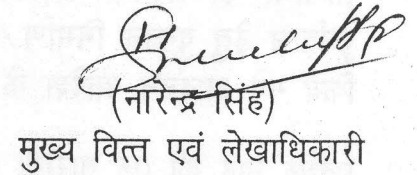 (नारेन्द्र सिंह)
मुख्य वित्त एवं लेखाधिकारी